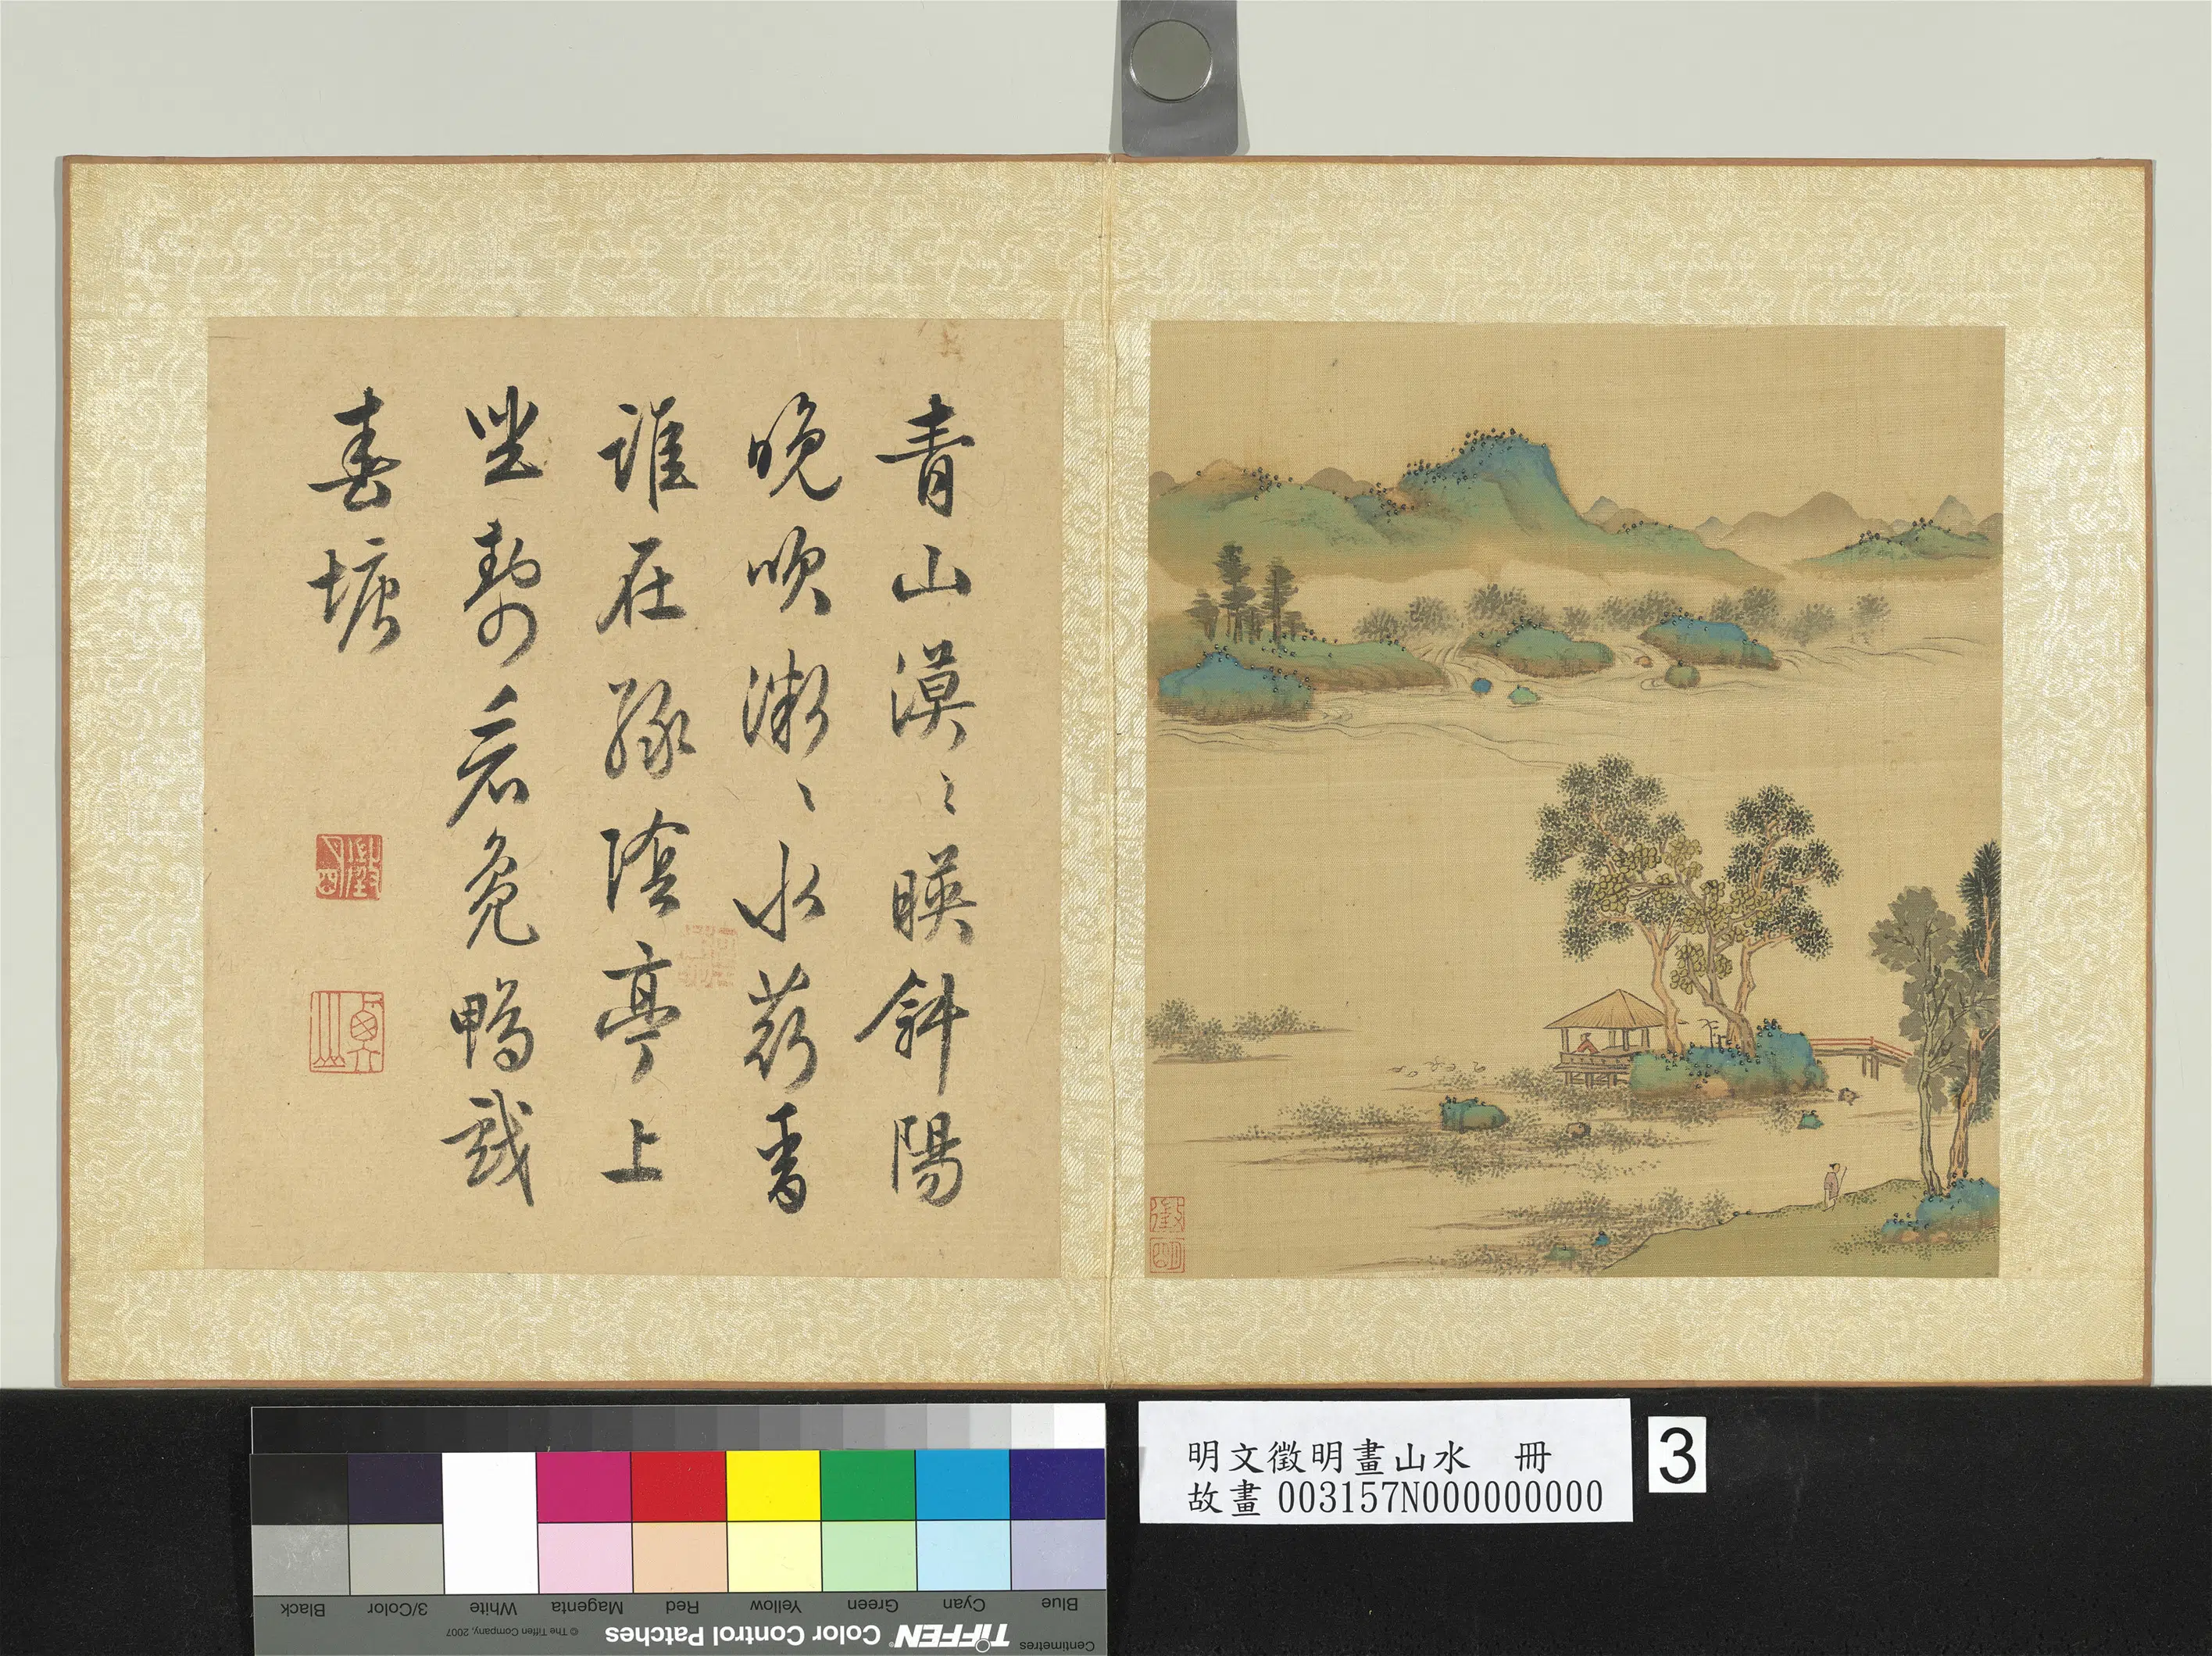 青山漠〻暎斜陽
晚吹〻水香
誰在綠陰亭上
坐看鳧鴨戲
春塘
徵明
明文徵明畫山水　冊
故畫 003157N000000000
3
Blue Cyan Green Yellow Red Magenta White 3/Color Black
Centimetres TIFFEN® Color Control Patches © The Tiffen Company, 2007